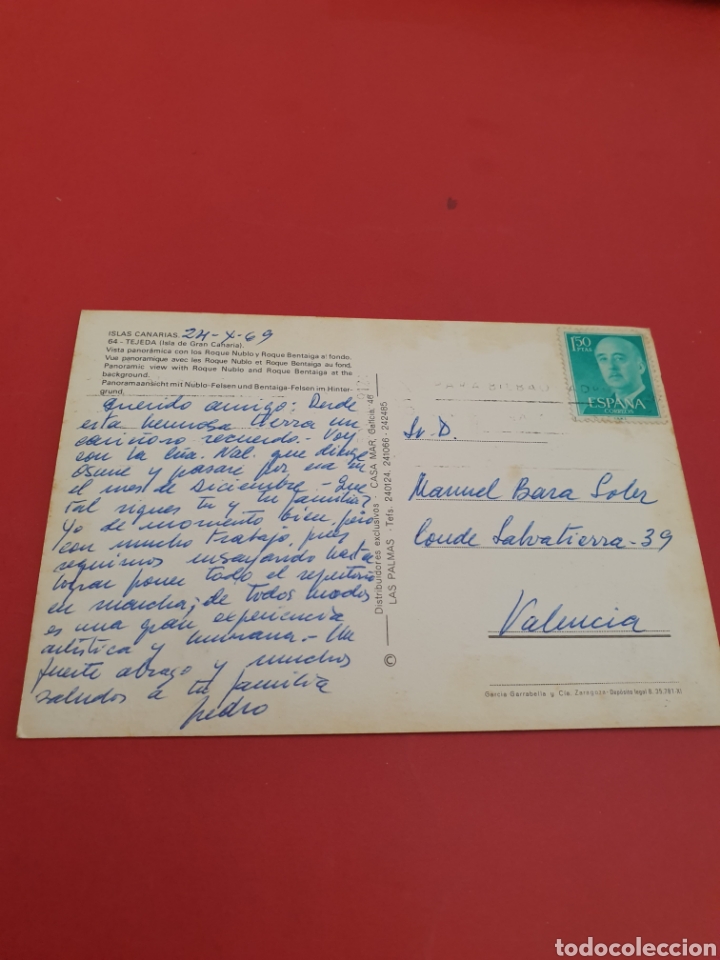 ISLAS CANARIAS. 24-X-69
64 - TEJEDA (Isla de Gran Canaria).
Vista panorámica con los Roque Nublo y Roque Bentaiga al fondo.
Vue panoramique avec les Roque Nublo et Roque Bentaiga au fond.
Panoramic view with Roque Nublo and Roque Bentaiga at the
background.
Panoramaansicht mit Nublo-Felsen und Bentaiga-Felsen im Hinter-
grund.
Querido amigo: Desde
esta hermosa tierra un
cariñoso recuerdo.- Voy
con la Cía. Nal. que dirige
Osuna y pasaré por esa en
el mes de Diciembre.- Que
tal sigues tu y tu familia?
Yo de momento bien, pero
con mucho trabajo, pues
seguimos ensayando hasta
lograr poner todo el repertorio
en marcha; de todos modos
es una gran experiencia
artística y humana.- Un
fuerte abrazo y muchos
saludos a tu familia
Pedro
© Distribuidores exclusivos: CASA MAR, Galicia, 46
LAS PALMAS - Tefs. 240124, 241066 - 242485
1'50
PTAS
ESPAÑA
CORREOS
Sr. D.
Manuel Bara Soler
Conde Salvatierra-39
Valencia
García Garrabella y Cía. Zaragoza-Depósito legal B. 35.781-XI
todocoleccion